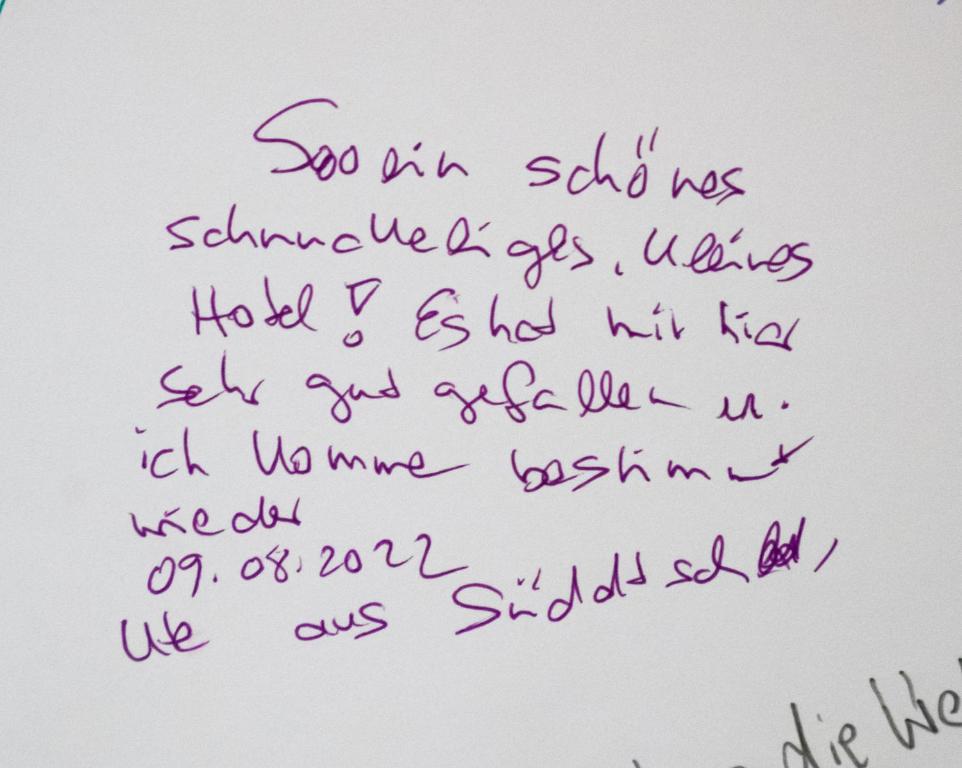 Soo ein schönes
schnuckeliges, kleines
Hotel! Es hat mir hier
sehr gut gefallen u.
ich komme bestimmt
wieder
09.08.2022
Ute aus Süddtsch
die We